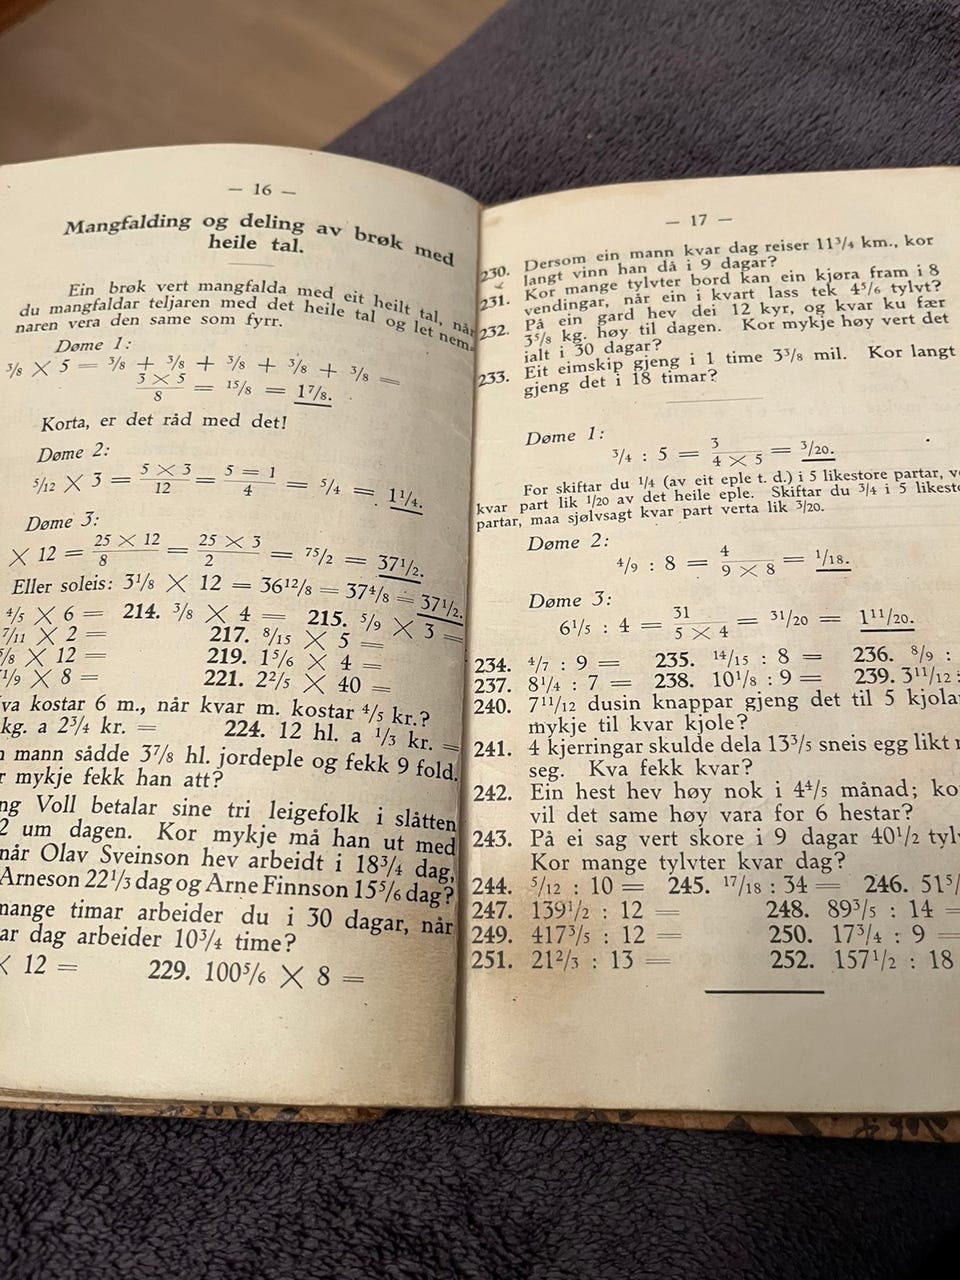 — 16 —
Mangfalding og deling av brøk med
heile tal.
Ein brøk vert mangfalda med eit heilt tal, når
du mangfaldar teljaren med det heile tal og let nem-
naren vera den same som fyrr.
Døme 1:
3/8 × 5 = 3/8 + 3/8 + 3/8 + 3/8 + 3/8 =
3 × 5 / 8 = 15/8 = 1 7/8.
Korta, er det råd med det!
Døme 2:
5/12 × 3 = 5 × 3 / 12 = 5 = 1 / 4 = 5/4 = 1 1/4.
Døme 3:
× 12 = 25 × 12 / 8 = 25 × 3 / 2 = 75/2 = 37 1/2.
Eller soleis: 3 1/8 × 12 = 36 12/8 = 37 4/8 = 37 1/2.
4/5 × 6 = 214. 3/8 × 4 = 215. 5/9 × 3 =
7/11 × 2 = 217. 8/15 × 5 =
/8 × 12 = 219. 1 5/6 × 4 =
1/9 × 8 = 221. 2 2/5 × 40 =
va kostar 6 m., når kvar m. kostar 4/5 kr.?
kg. a 2 3/4 kr. = 224. 12 hl. a 1/3 kr. =
mann sådde 3 7/8 hl. jordeple og fekk 9 fold.
r mykje fekk han att?
ng Voll betalar sine tri leigefolk i slåtten
2 um dagen. Kor mykje må han ut med
når Olav Sveinson hev arbeidt i 18 3/4 dag,
Arneson 22 1/3 dag og Arne Finnson 15 5/6 dag?
mange timar arbeider du i 30 dagar, når
ar dag arbeider 10 3/4 time?
× 12 = 229. 100 5/6 × 8 =
— 17 —
230. Dersom ein mann kvar dag reiser 11 3/4 km., kor
langt vinn han då i 9 dagar?
231. Kor mange tylvter bord kan ein kjøra fram i 8
vendingar, når ein i kvart lass tek 4 5/6 tylvt?
232. På ein gard hev dei 12 kyr, og kvar ku fær
3 5/8 kg. høy til dagen. Kor mykje høy vert det
ialt i 30 dagar?
233. Eit eimskip gjeng i 1 time 3 3/8 mil. Kor langt
gjeng det i 18 timar?
Døme 1:
3/4 : 5 = 3 / 4 × 5 = 3/20.
For skiftar du 1/4 (av eit eple t. d.) i 5 likestore partar, v
kvar part lik 1/20 av det heile eple. Skiftar du 3/4 i 5 likest
partar, maa sjølvsagt kvar part verta lik 3/20.
Døme 2:
4/9 : 8 = 4 / 9 × 8 = 1/18.
Døme 3:
6 1/5 : 4 = 31 / 5 × 4 = 31/20 = 1 11/20.
234. 4/7 : 9 = 235. 14/15 : 8 = 236. 8/9 :
237. 8 1/4 : 7 = 238. 10 1/8 : 9 = 239. 3 11/12 :
240. 7 11/12 dusin knappar gjeng det til 5 kjola
mykje til kvar kjole?
241. 4 kjerringar skulde dela 13 3/5 sneis egg likt
seg. Kva fekk kvar?
242. Ein hest hev høy nok i 4 4/5 månad; ko
vil det same høy vara for 6 hestar?
243. På ei sag vert skore i 9 dagar 40 1/2 tyl
Kor mange tylvter kvar dag?
244. 5/12 : 10 = 245. 17/18 : 34 = 246. 51 5/
247. 139 1/2 : 12 = 248. 89 3/5 : 14 =
249. 417 3/5 : 12 = 250. 17 3/4 : 9 =
251. 21 2/3 : 13 = 252. 157 1/2 : 18